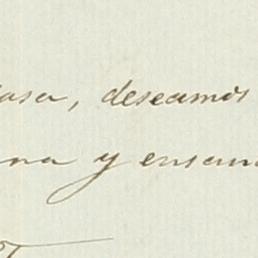 asa, deseamos
na y ensan